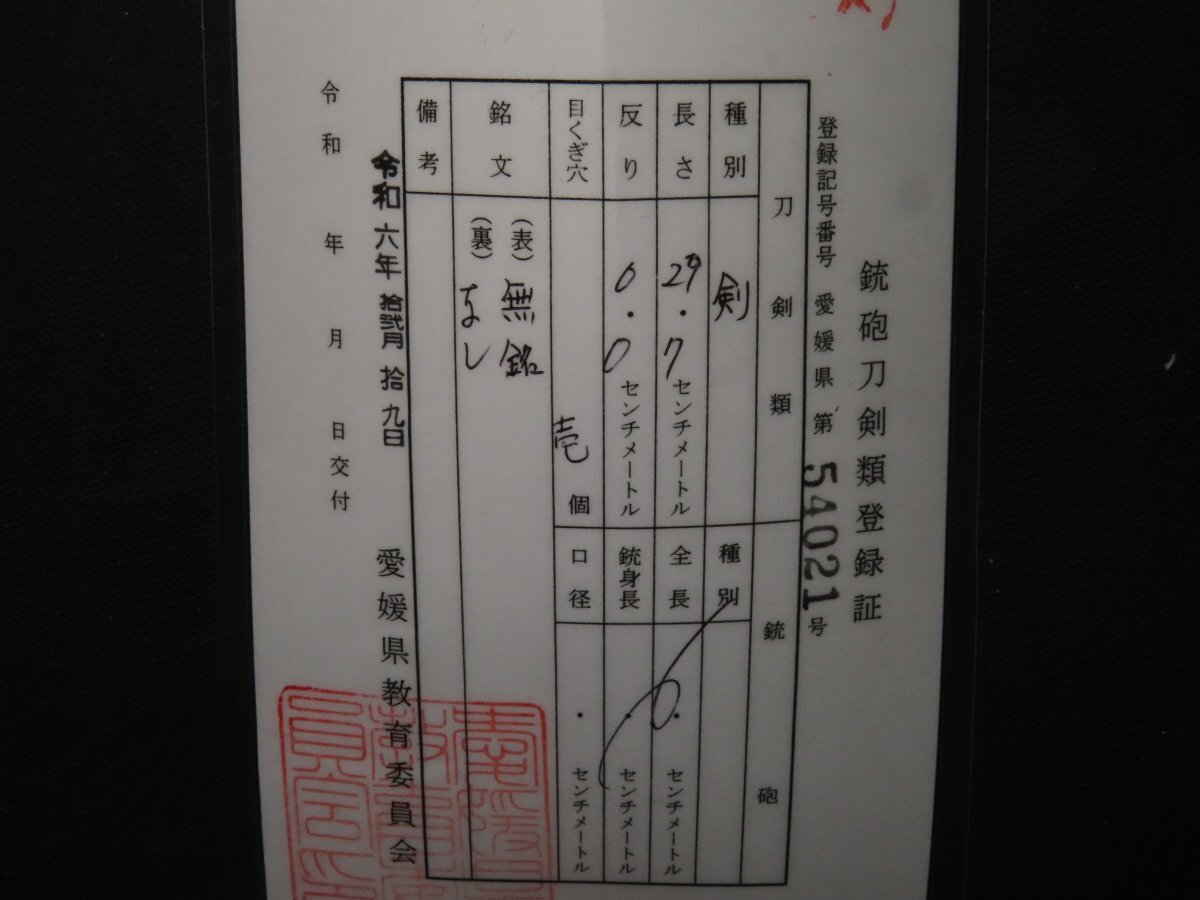 銃砲刀剣類登録証
登録記号番号 愛媛県 第 54021 号
刀剣類
種別 剣
長さ 29.7 センチメートル
反り 0.0 センチメートル
目くぎ穴 壱 個
銃砲
種別
全長 . センチメートル
銃身長 . センチメートル
口径 . センチメートル
銘文 (表) 無銘
(裏) なし
備考
令和六年拾弐月拾九日
愛媛県教育委員会
令和 年 月 日交付